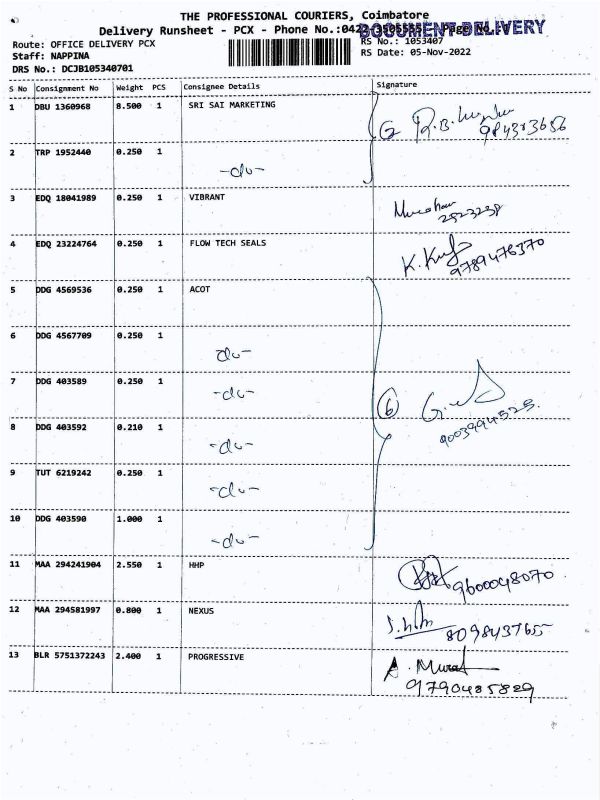 THE PROFESSIONAL COURIERS, Coimbatore
Delivery Runsheet - PCX - Phone No.:
DOCUMENT DELIVERY
Route: OFFICE DELIVERY PCX
RS No.: 1053407
Staff: NAPPINA
RS Date: 05-Nov-2022
DRS No.: DCJB105340701
S No Consignment No Weight PCS Consignee Details Signature
1 DBU 1360968 8.500 1 SRI SAI MARKETING
2 TRP 1952440 0.250 1 -do-
3 EDQ 18041989 0.250 1 VIBRANT
4 EDQ 23224764 0.250 1 FLOW TECH SEALS
9789476370
5 DDG 4569536 0.250 1 ACOT
6 DDG 4567709 0.250 1 do-
7 DDG 403589 0.250 1 -do-
6
9003994525.
8 DDG 403592 0.210 1 -do-
9 TUT 6219242 0.250 1 -do-
10 DDG 403590 1.000 1 -do-
11 MAA 294241904 2.550 1 HHP
9600048070
12 MAA 294581997 0.800 1 NEXUS
809843765
13 BLR 5751372243 2.400 1 PROGRESSIVE
A. Murali
9790485829